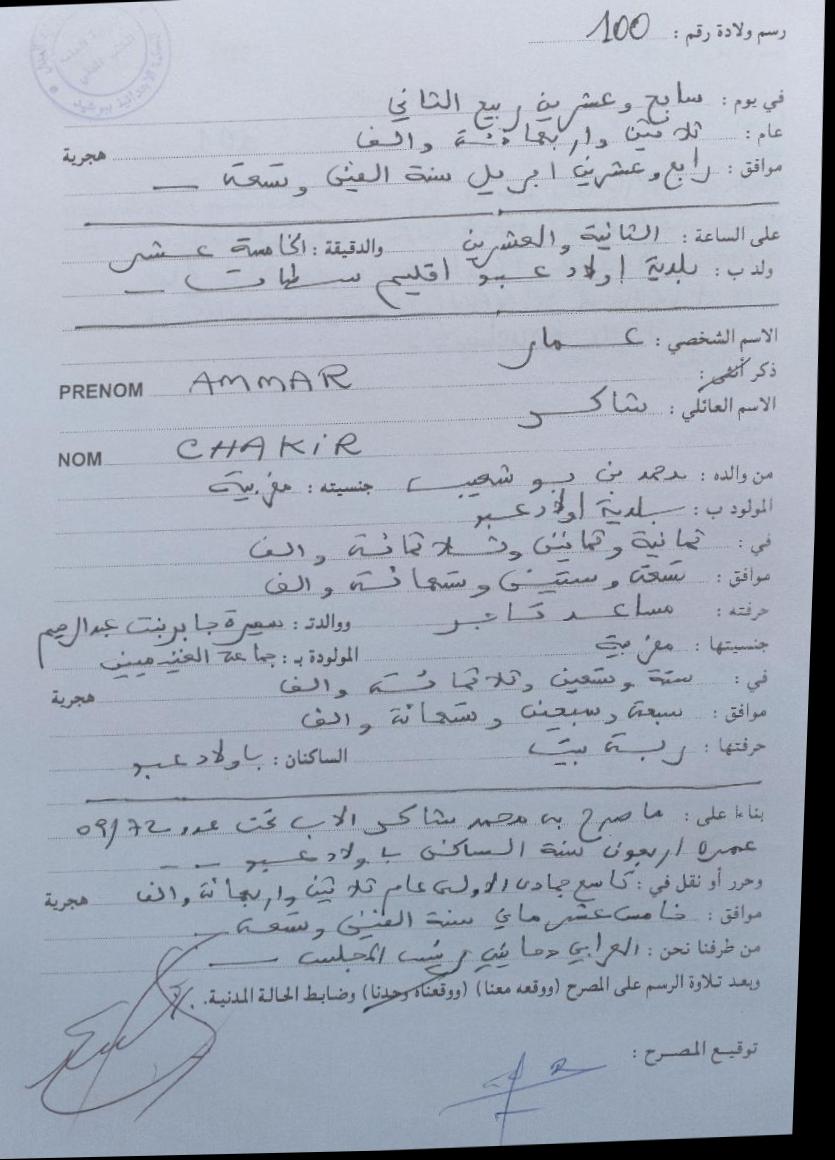 رسم ولادة رقم : 100
في يوم : سابع وعشرين ربيع الثاني
عام : ثلاثين واربعمائة والف هجرية
موافق : رابع وعشرين ابريل سنة الفين وتسعة
على الساعة : الثانية والعشرين والدقيقة : الخامسة عشر
ولد ب : بلدية اولاد عبو اقليم سطات
الاسم الشخصي : عمار
ذكر أنثى :
PRENOM AMMAR
الاسم العائلي : شاكر
NOM CHAKiR
من والده : محمد بن بوشعيب جنسيته : مغربية
المولود ب : بلدية اولاد عبو
في : ثمانية وثمانين وثلاثمائة والف
موافق : تسعة وستين وتسعمائة والف
حرفته : مساعد تاجر ووالدتـ : سميرة جابر بنت عبد الرحيم
جنسيتها : مغربية المولودة بـ : جماعة الغنيميين
في : ستة وتسعين وثلاثمائة والف هجرية
موافق : سبعة وسبعين وتسعمائة والف
حرفتها : ربة بيت الساكنان : باولاد عبو
بناءا على : ما صرح به محمد شاكر الاب تحت عدد 09/72
عمره اربعون سنة الساكن باولاد عبو
وحرر أو نقل في : تاسع جمادى الاولى عام ثلاثين واربعمائة والف هجرية
موافق : خامس عشر ماي سنة الفين وتسعة
من طرفنا نحن : العرابي رئيس المجلس
وبعد تلاوة الرسم على المصرح (ووقعه معنا) (ووقعناه وحدنا) وضابط الحالة المدنية.
توقيع المصرح :